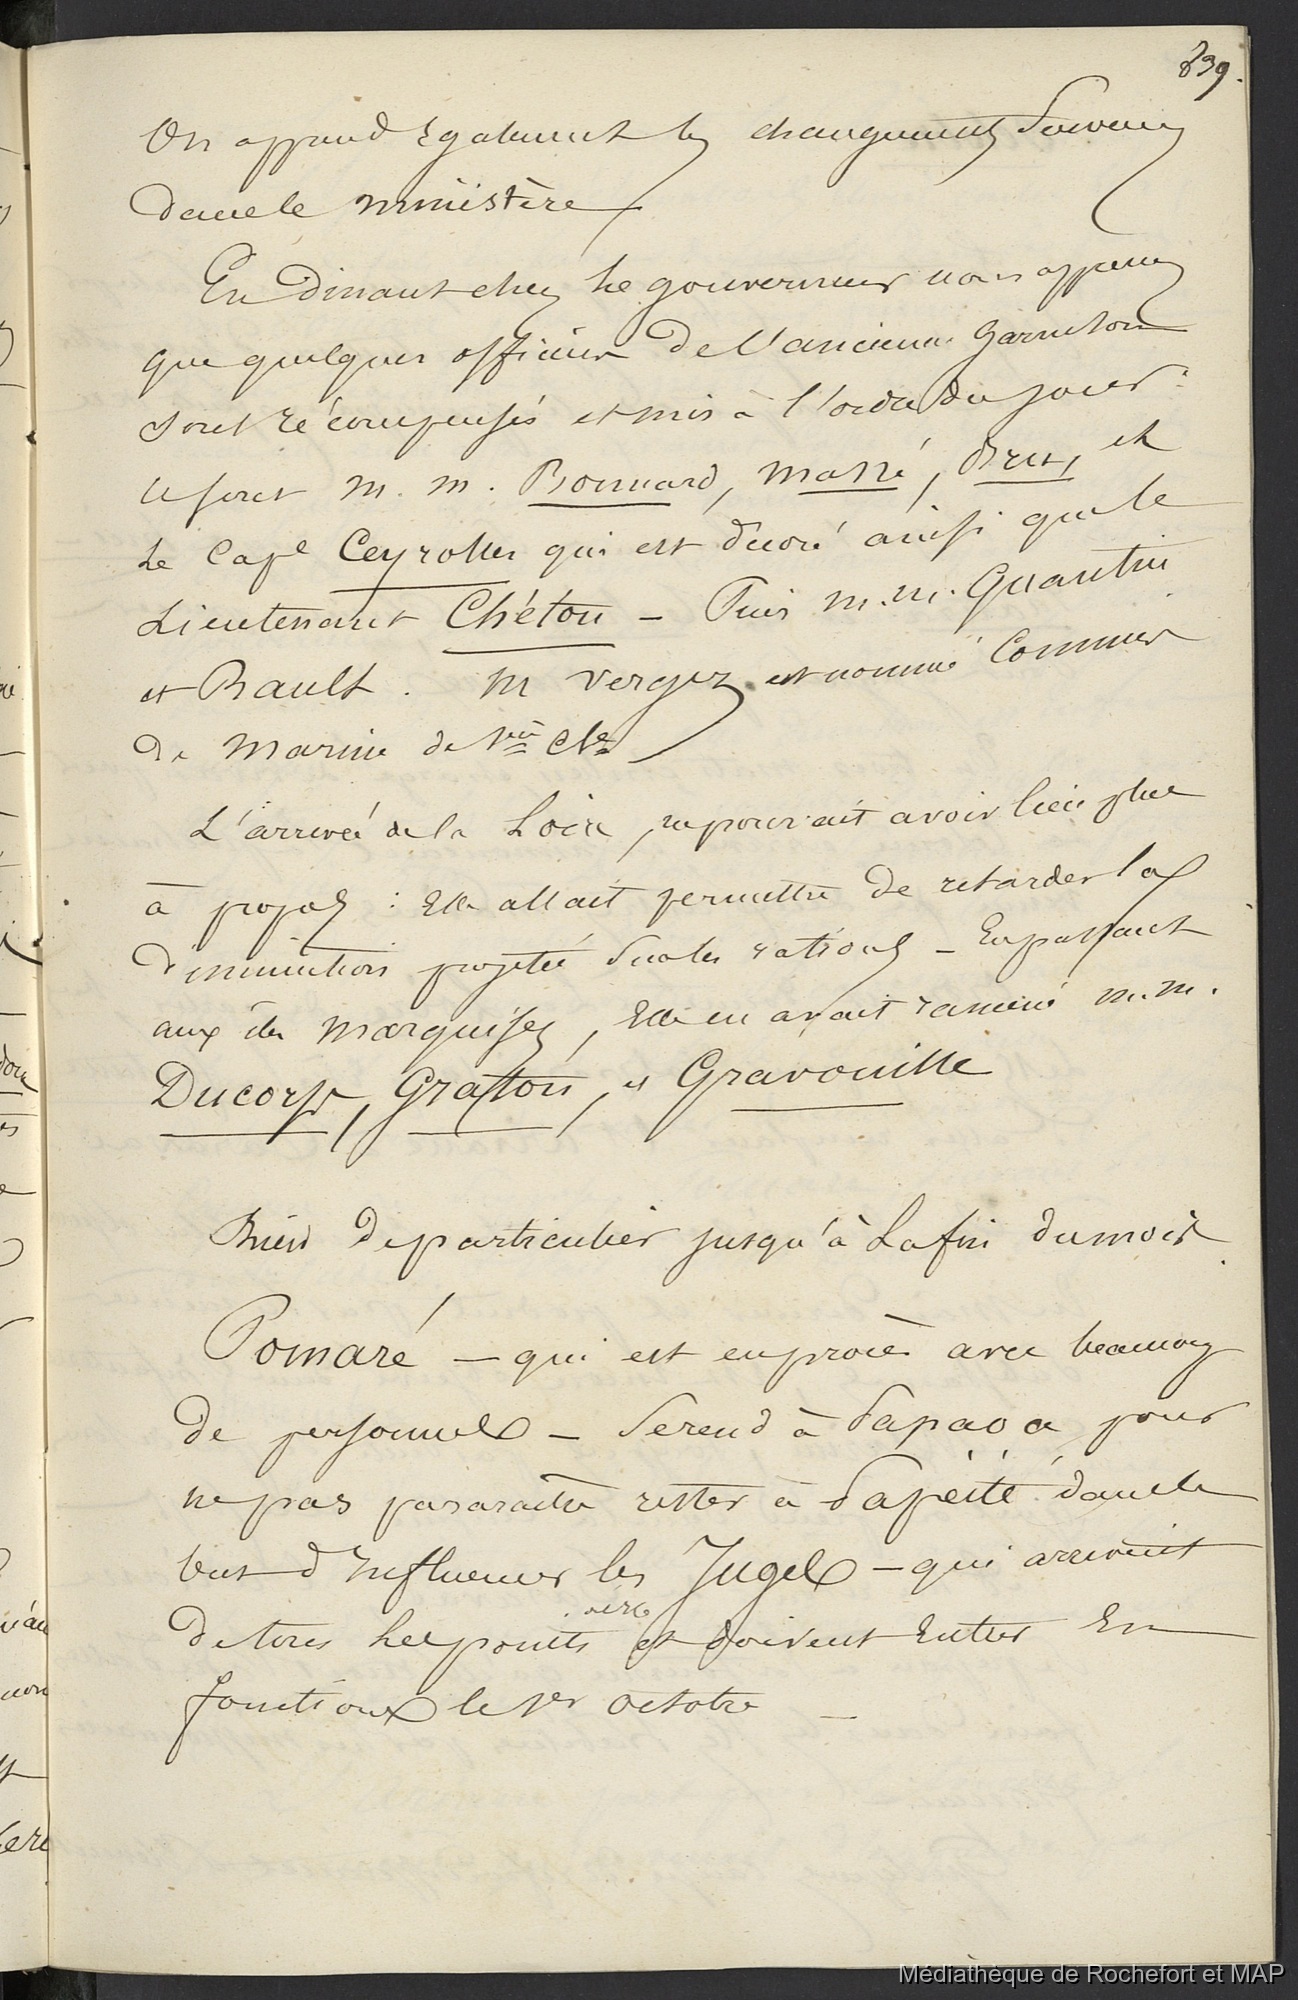 839.
On apprend également les changements survenus
dans le ministère
En dinant chez le gouverneur nous apprenons
que quelques officiers de l'ancienne garnison
sont récompensés et mis à l'ordre du jour :
ce sont M. M. Bonnard, Massé, Brun, et
le Cape Ceyrolles qui est décoré ainsi que le
Lieutenant Chéton – Puis M. M. Quantin
et Rault. M Vergez est nommé Commisre
de Marine de 1ère Cle
L'arrivée de la Loire, ne pouvait avoir lieu plus
à propos : Elle allait permettre de retarder la
diminution projetée sur les rations – En passant
aux îles Marquises, Elle en avait ramené M. M.
Ducorps, Graton, et Gravouille
Rien de particulier jusqu'à la fin du mois.
Pomaré – qui est en procès avec beaucoup
de personnes – se rend à Papaoa pour
ne pas pararaître rester à Papéité dans le
but d'influencer les Juges – qui arrivent
de tous les points et doivent Entrer En
fonctions le 1er octobre –
Médiathèque de Rochefort et MAP